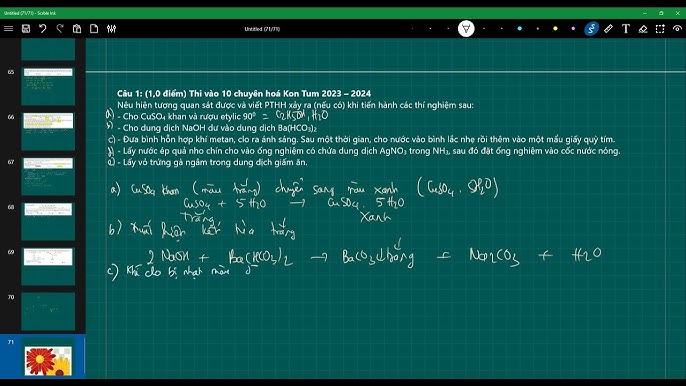 Untitled (71/71) - Scrble Ink
Untitled (71/71)
65
66
67
68
69
70
71
Câu 1: (1,0 điểm) Thi vào 10 chuyên hoá Kon Tum 2023 – 2024
Nêu hiện tượng quan sát được và viết PTHH xảy ra (nếu có) khi tiến hành các thí nghiệm sau:
a) - Cho CuSO4 khan và rượu etylic 90⁰ = C2H5OH, H2O
b) - Cho dung dịch NaOH dư vào dung dịch Ba(HCO3)2
c) - Đưa bình hỗn hợp khí metan, clo ra ánh sáng. Sau một thời gian, cho nước vào bình lắc nhẹ rồi thêm vào một mẩu giấy quỳ tím.
d) - Lấy nước ép quả nho chín cho vào ống nghiệm có chứa dung dịch AgNO3 trong NH3, sau đó đặt ống nghiệm vào cốc nước nóng.
e) - Lấy vỏ trứng gà ngâm trong dung dịch giấm ăn.
a) CuSO4 khan (màu trắng) chuyển sang màu xanh (CuSO4 . 5H2O)
CuSO4 + 5H2O → CuSO4 . 5H2O
trắng xanh
b) Xuất hiện kết tủa trắng
2NaOH + Ba(HCO3)2 → BaCO3↓trắng + Na2CO3 + H2O
c) Khí clo bị nhạt màu